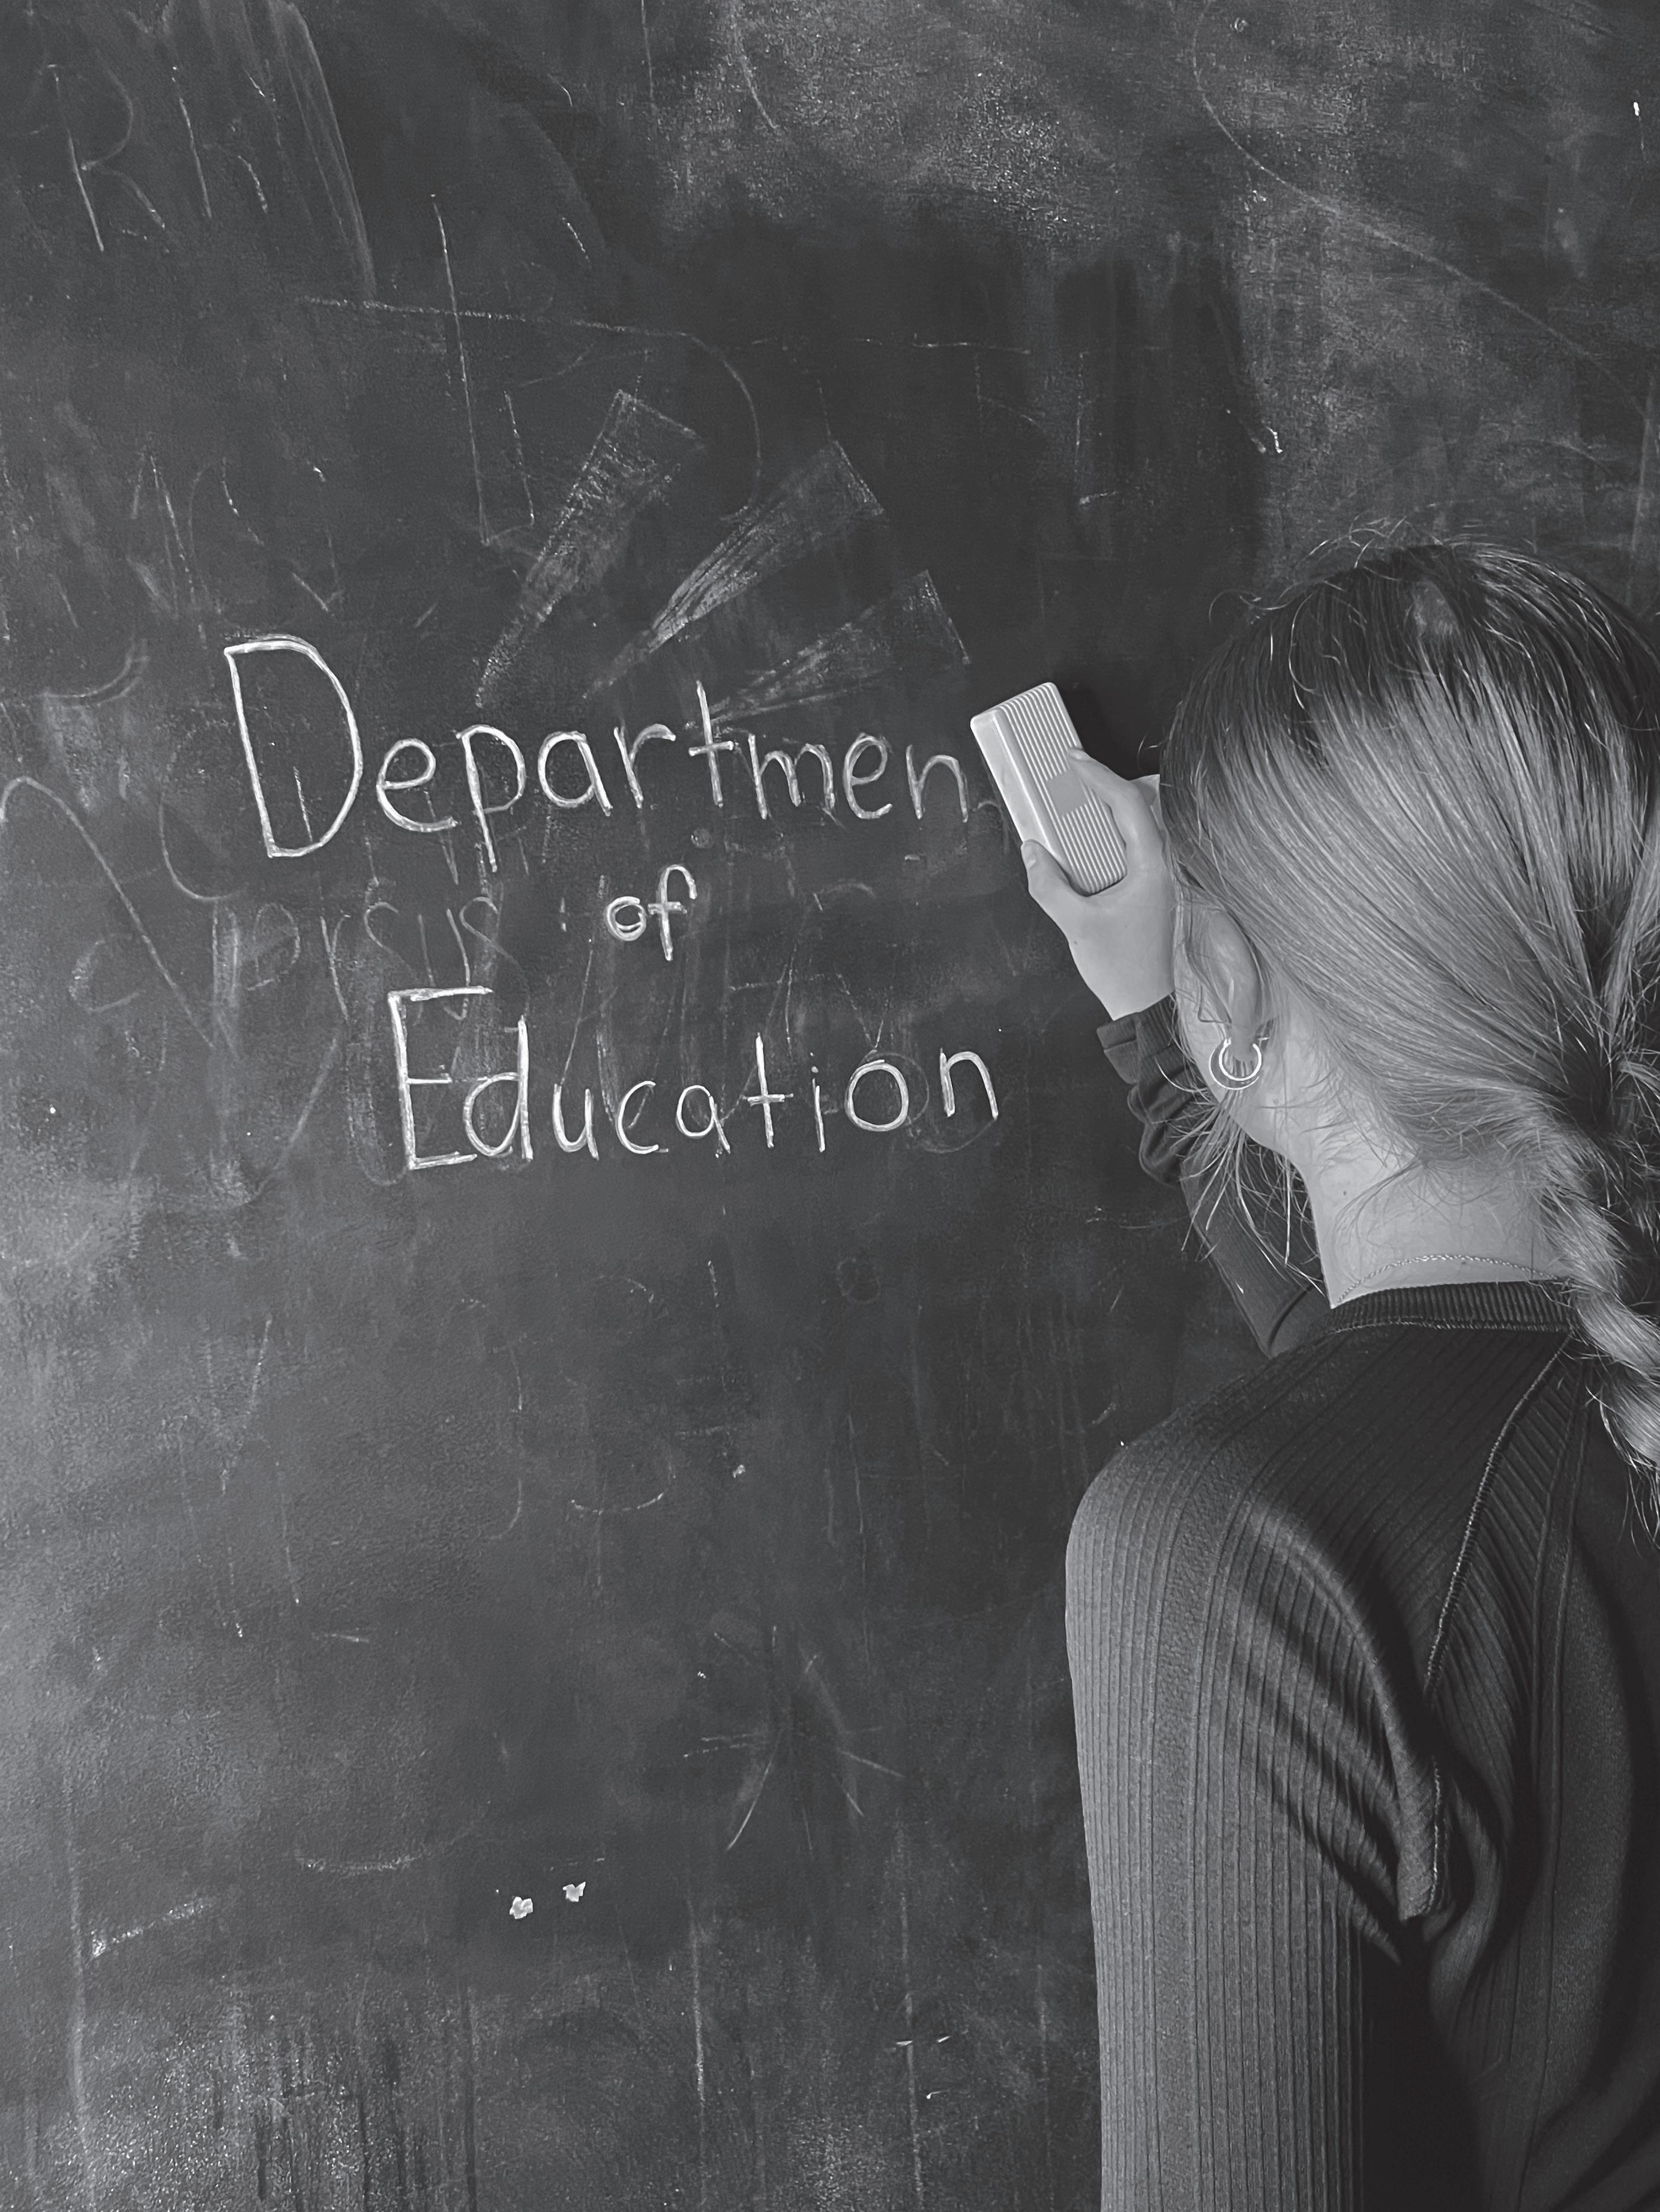 Departmen
of
Education